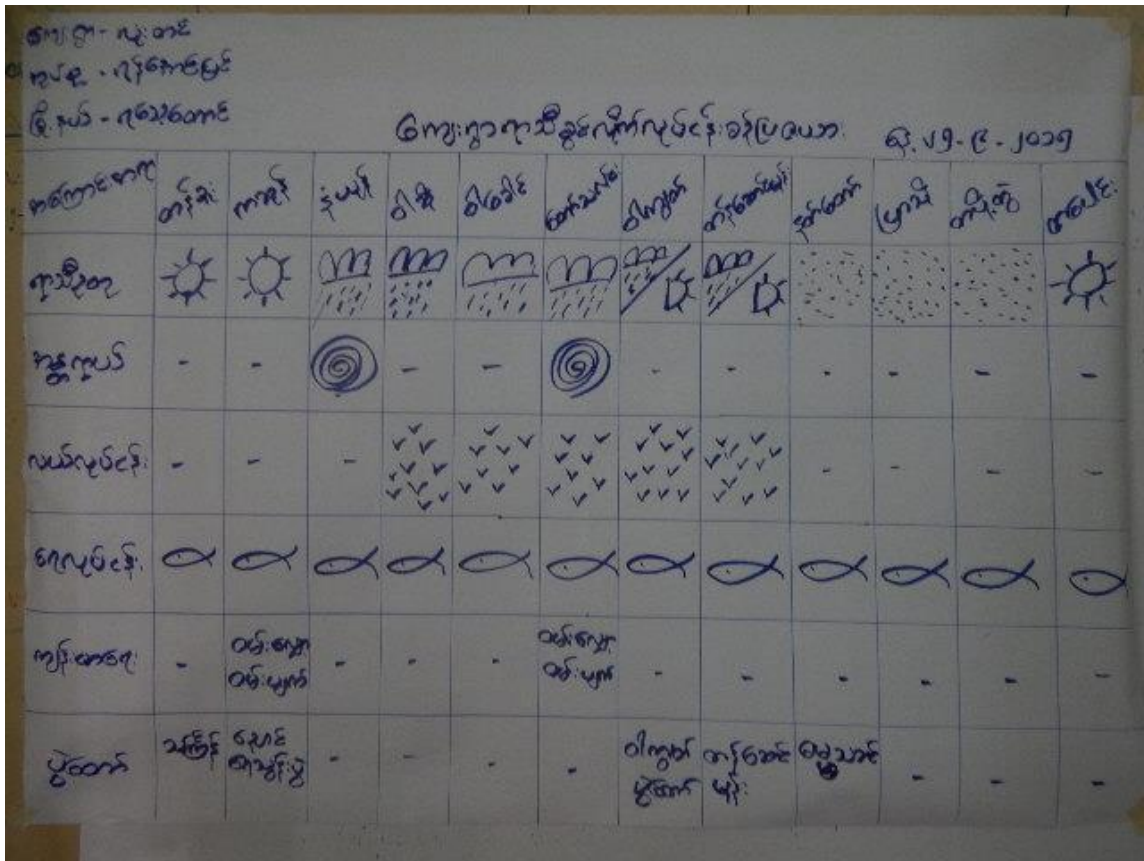 ကျေးရွာ - လူးတင်
အုပ်စု - ကုန်းတောင်မြင်
မြို့နယ် - ရသေ့တောင်
ကျေးရွာရာသီခွင်လိုက်လုပ်ငန်းခန့်ပြဇယား ရက်.၂၅.၉.၂၀၁၅
အကြောင်းအရာ တန်ခူး ကဆုန် နံယုန် ဝါဆို ဝါခေါင် တော်သလင်း ဝါကျွတ် တန်ဆောင်မုန်း နတ်တော် ပြာသို တပို့တွဲ တပေါင်း
ရာသီဥတု
အန္တရာယ် - - - - - - - - - -
လယ်လုပ်ငန်း - - - - - - -
ရေလုပ်ငန်း
ကျန်းမာရေး - ဝမ်းလျှော - - - ဝမ်းလျှော - - - - - -
ဝမ်းပျက် ဝမ်းပျက်
ပွဲတော် သင်္ကြန် ညောင် - - - - ဝါကျွတ် တန်ဆောင် - - -
ရေသွန်းပွဲ ပွဲတော် မုန်း